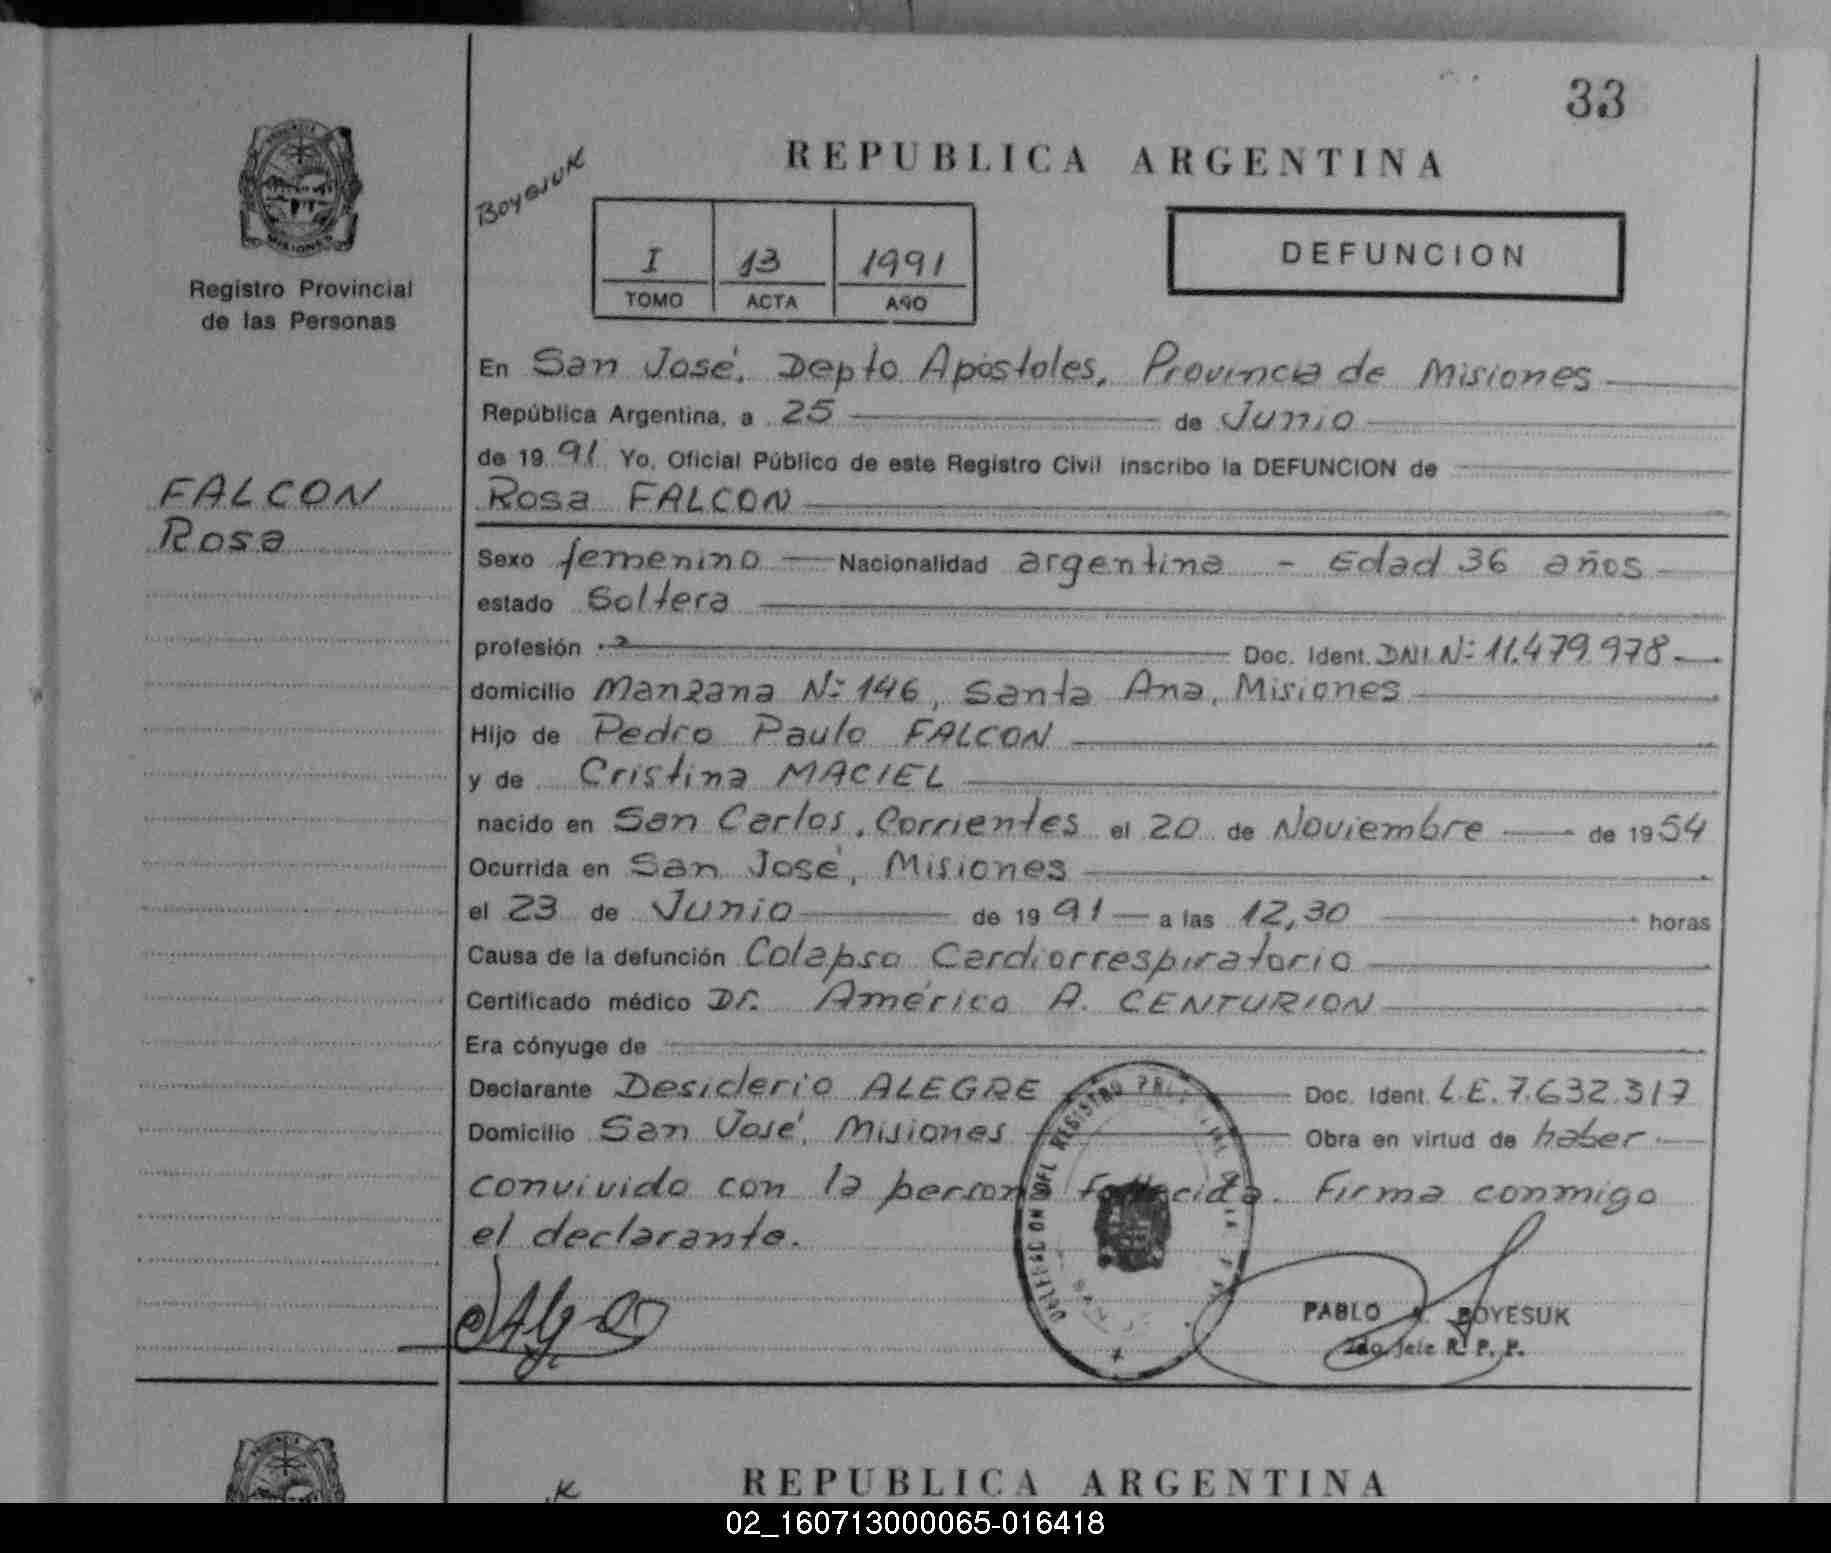 33
REPUBLICA ARGENTINA
BOYESUK
PROVINCIA
MISIONES
Registro Provincial
de las Personas
I 13 1991
TOMO ACTA AÑO
DEFUNCION
En San José, Depto Apóstoles, Provincia de Misiones
República Argentina, a 25 de Junio
de 1991 Yo, Oficial Público de este Registro Civil inscribo la DEFUNCION de
FALCON
Rosa
Rosa FALCON
Sexo femenino Nacionalidad argentina - Edad 36 años
estado Soltera
profesión Doc. Ident. DNI. Nº 11.479.978
domicilio Manzana Nº 146, Santa Ana, Misiones
Hijo de Pedro Paulo FALCON
y de Cristina MACIEL
nacido en San Carlos, Corrientes el 20 de Noviembre de 1954
Ocurrida en San José, Misiones
el 23 de Junio de 1991 a las 12,30 horas
Causa de la defunción Colapso Cardiorrespiratorio
Certificado médico Dr. Américo A. CENTURION
Era cónyuge de
Declarante Desiderio ALEGRE Doc. Ident. L.E. 7.632.317
Domicilio San José, Misiones Obra en virtud de haber
convivido con la persona fallecida. Firma conmigo
el declarante.
DEL REGISTRO
PABLO BOYESUK
2do Jefe R. P. P.
REPUBLICA ARGENTINA
02_160713000065-016418